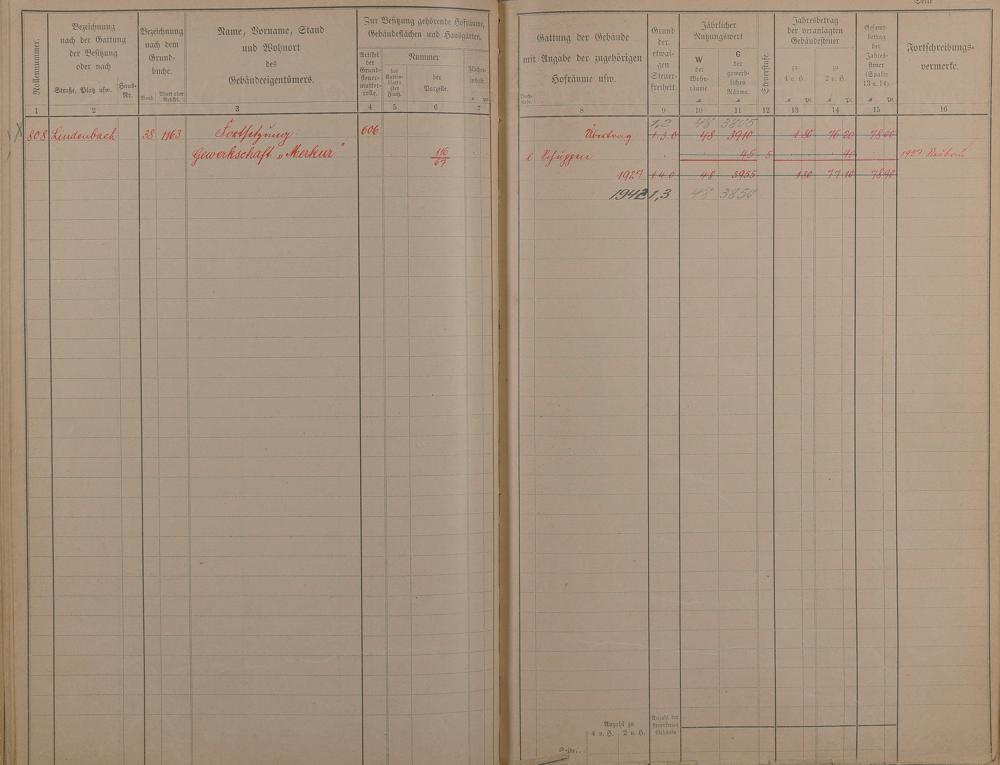 Rollennummer.
Bezeichnung
nach der Gattung
der Besitzung
oder nach
Straße, Platz usw.
Haus-
Nr.
Bezeichnung
nach dem
Grund-
buche.
Band.
Blatt oder
Artikel.
Name, Vorname, Stand
und Wohnort
des
Gebäudeeigentümers.
Zur Besitzung gehörende Hofräume,
Gebäudeflächen und Hausgärten.
Artikel
der
Grund-
steuer-
mutter-
rolle.
Nummer
des
Karten-
blatts
der
Parzelle.
Flächen-
inhalt.
1 2 3 4 5 6 7
808 Lindenbach 38 1163 Fortsetzung 606
Gewerkschaft „Merkur" 116/67
Seite
Gattung der Gebäude
mit Angabe der zugehörigen
Hofräume usw.
Grund
der
etwai-
gen
Steuer-
freiheit.
Jährlicher
Nutzungswert
W
der
Wohn-
räume
G
der
gewerb-
lichen
Räume.
Steuerstufe.
Jahresbetrag
der veranlagten
Gebäudesteuer
zu
4 v. H.
zu
2 v. H.
Gesamt-
betrag
der
Jahres-
steuer
(Spalte
13 u. 14).
Fortschreibungs-
vermerke.
8 9 10 11 12 13 14 15 16
1,2 48
Übertrag 1.3.0 48 3910 1 80 76 20 78 00
l Schuppen 45 5 90 1927 Neubau
1927 1.4.0 48 3955 1 80 77 10 78 90
1942 1,3 48 3850
Anzahl zu
4 v. H. 2 v. H.
Anzahl der
steuerfreien
Gebäude